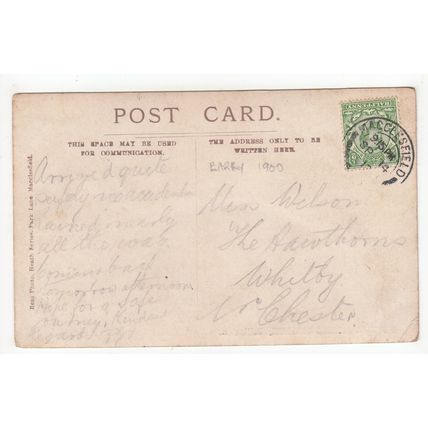 POST CARD.
THIS SPACE MAY BE USED
FOR COMMUNICATION.
THE ADDRESS ONLY TO BE
WRITTEN HERE.
BARRY 1900
HALFPENNY
MACCLESFIELD
Real Photo, Heath Series, Park Lane, Macclesfield.
Arrived quite
safely no accidents
Rained nearly
all the way.
Coming back
tomorrow afternoon
hope for a safe
journey, Kindest
Regards
Miss Wilson
The Hawthorns
Whitby
Nr Chester